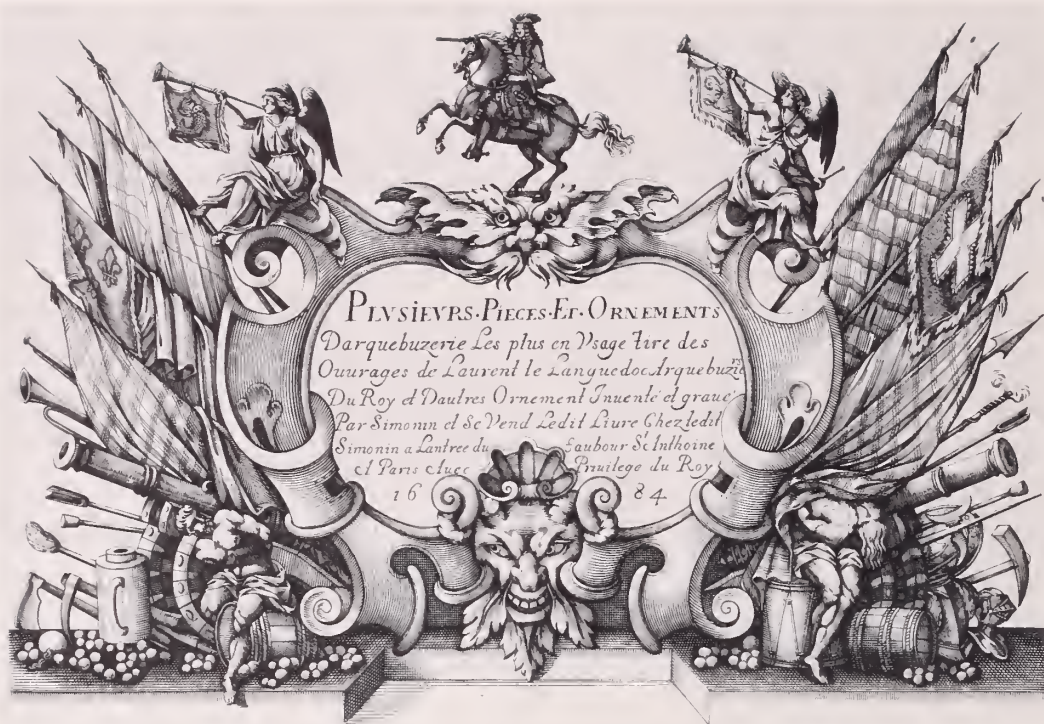 PLVSIEVRS·PIECES·ET·ORNEMENTS
Darquebuzerie Les plus en Vsage tire des
Ouurages de Laurent le Languedoc Arquebuzirs
Du Roy et Dautres Ornement Inuenté et graué
Par Simonin et Se Vend Ledit Liure Chez ledit
Simonin a Lantree du Faubour St Inthoine
A Paris Auec Priuilege du Roy
16 84